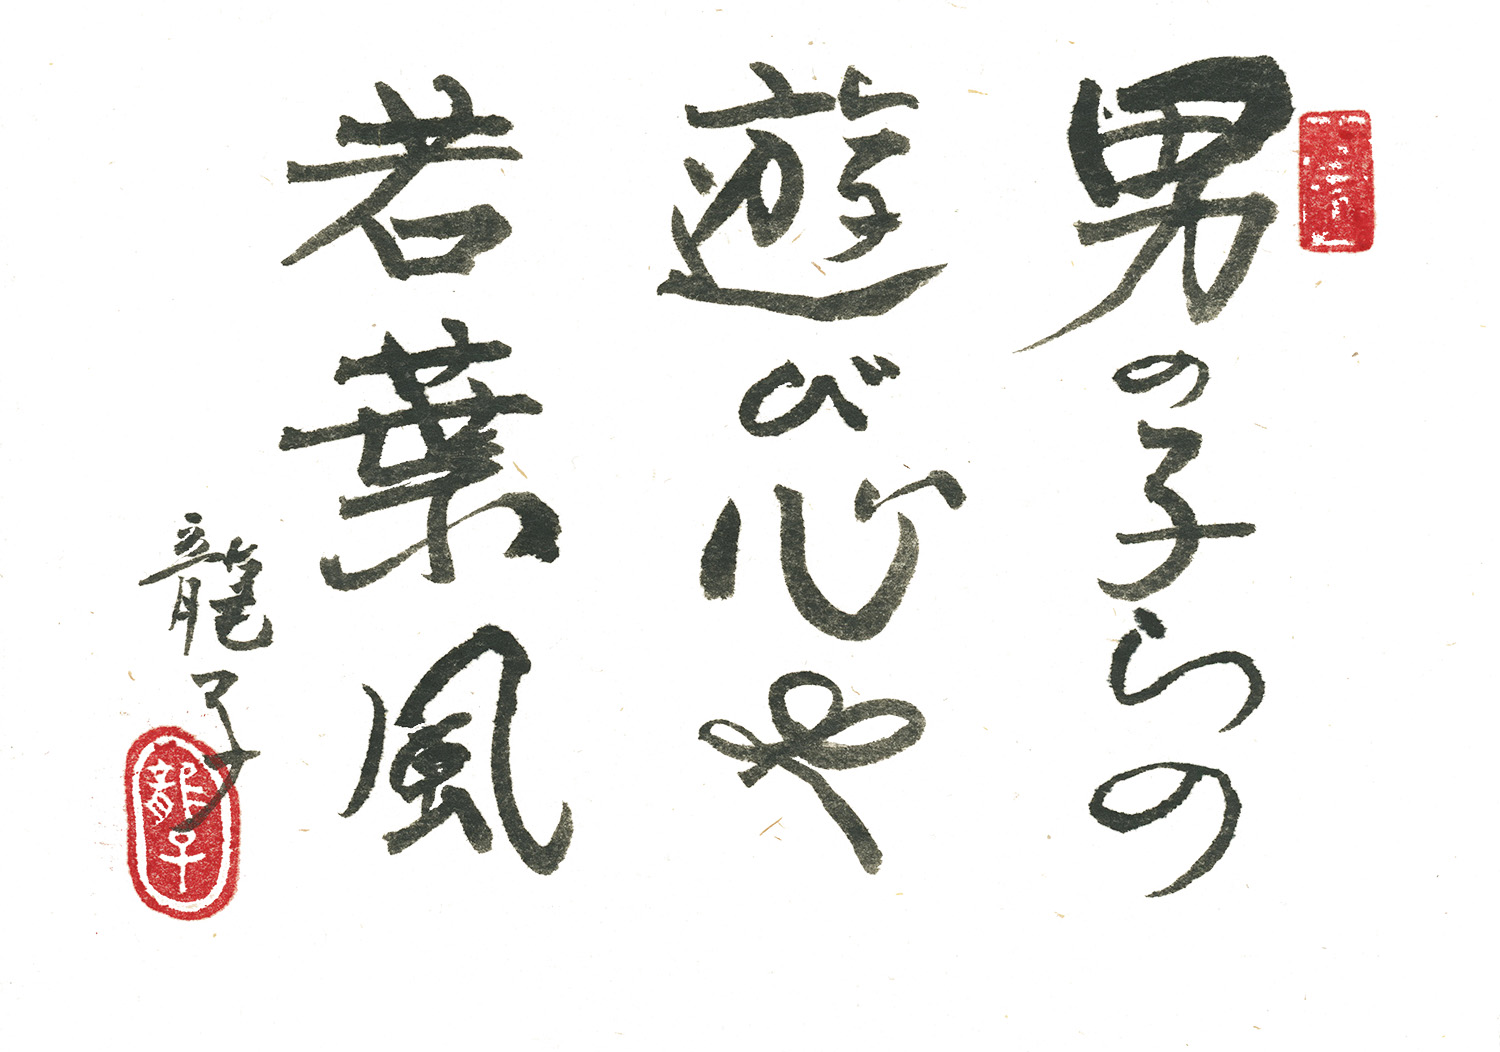 男の子らの
遊び心や
若葉風
龍子
龍子